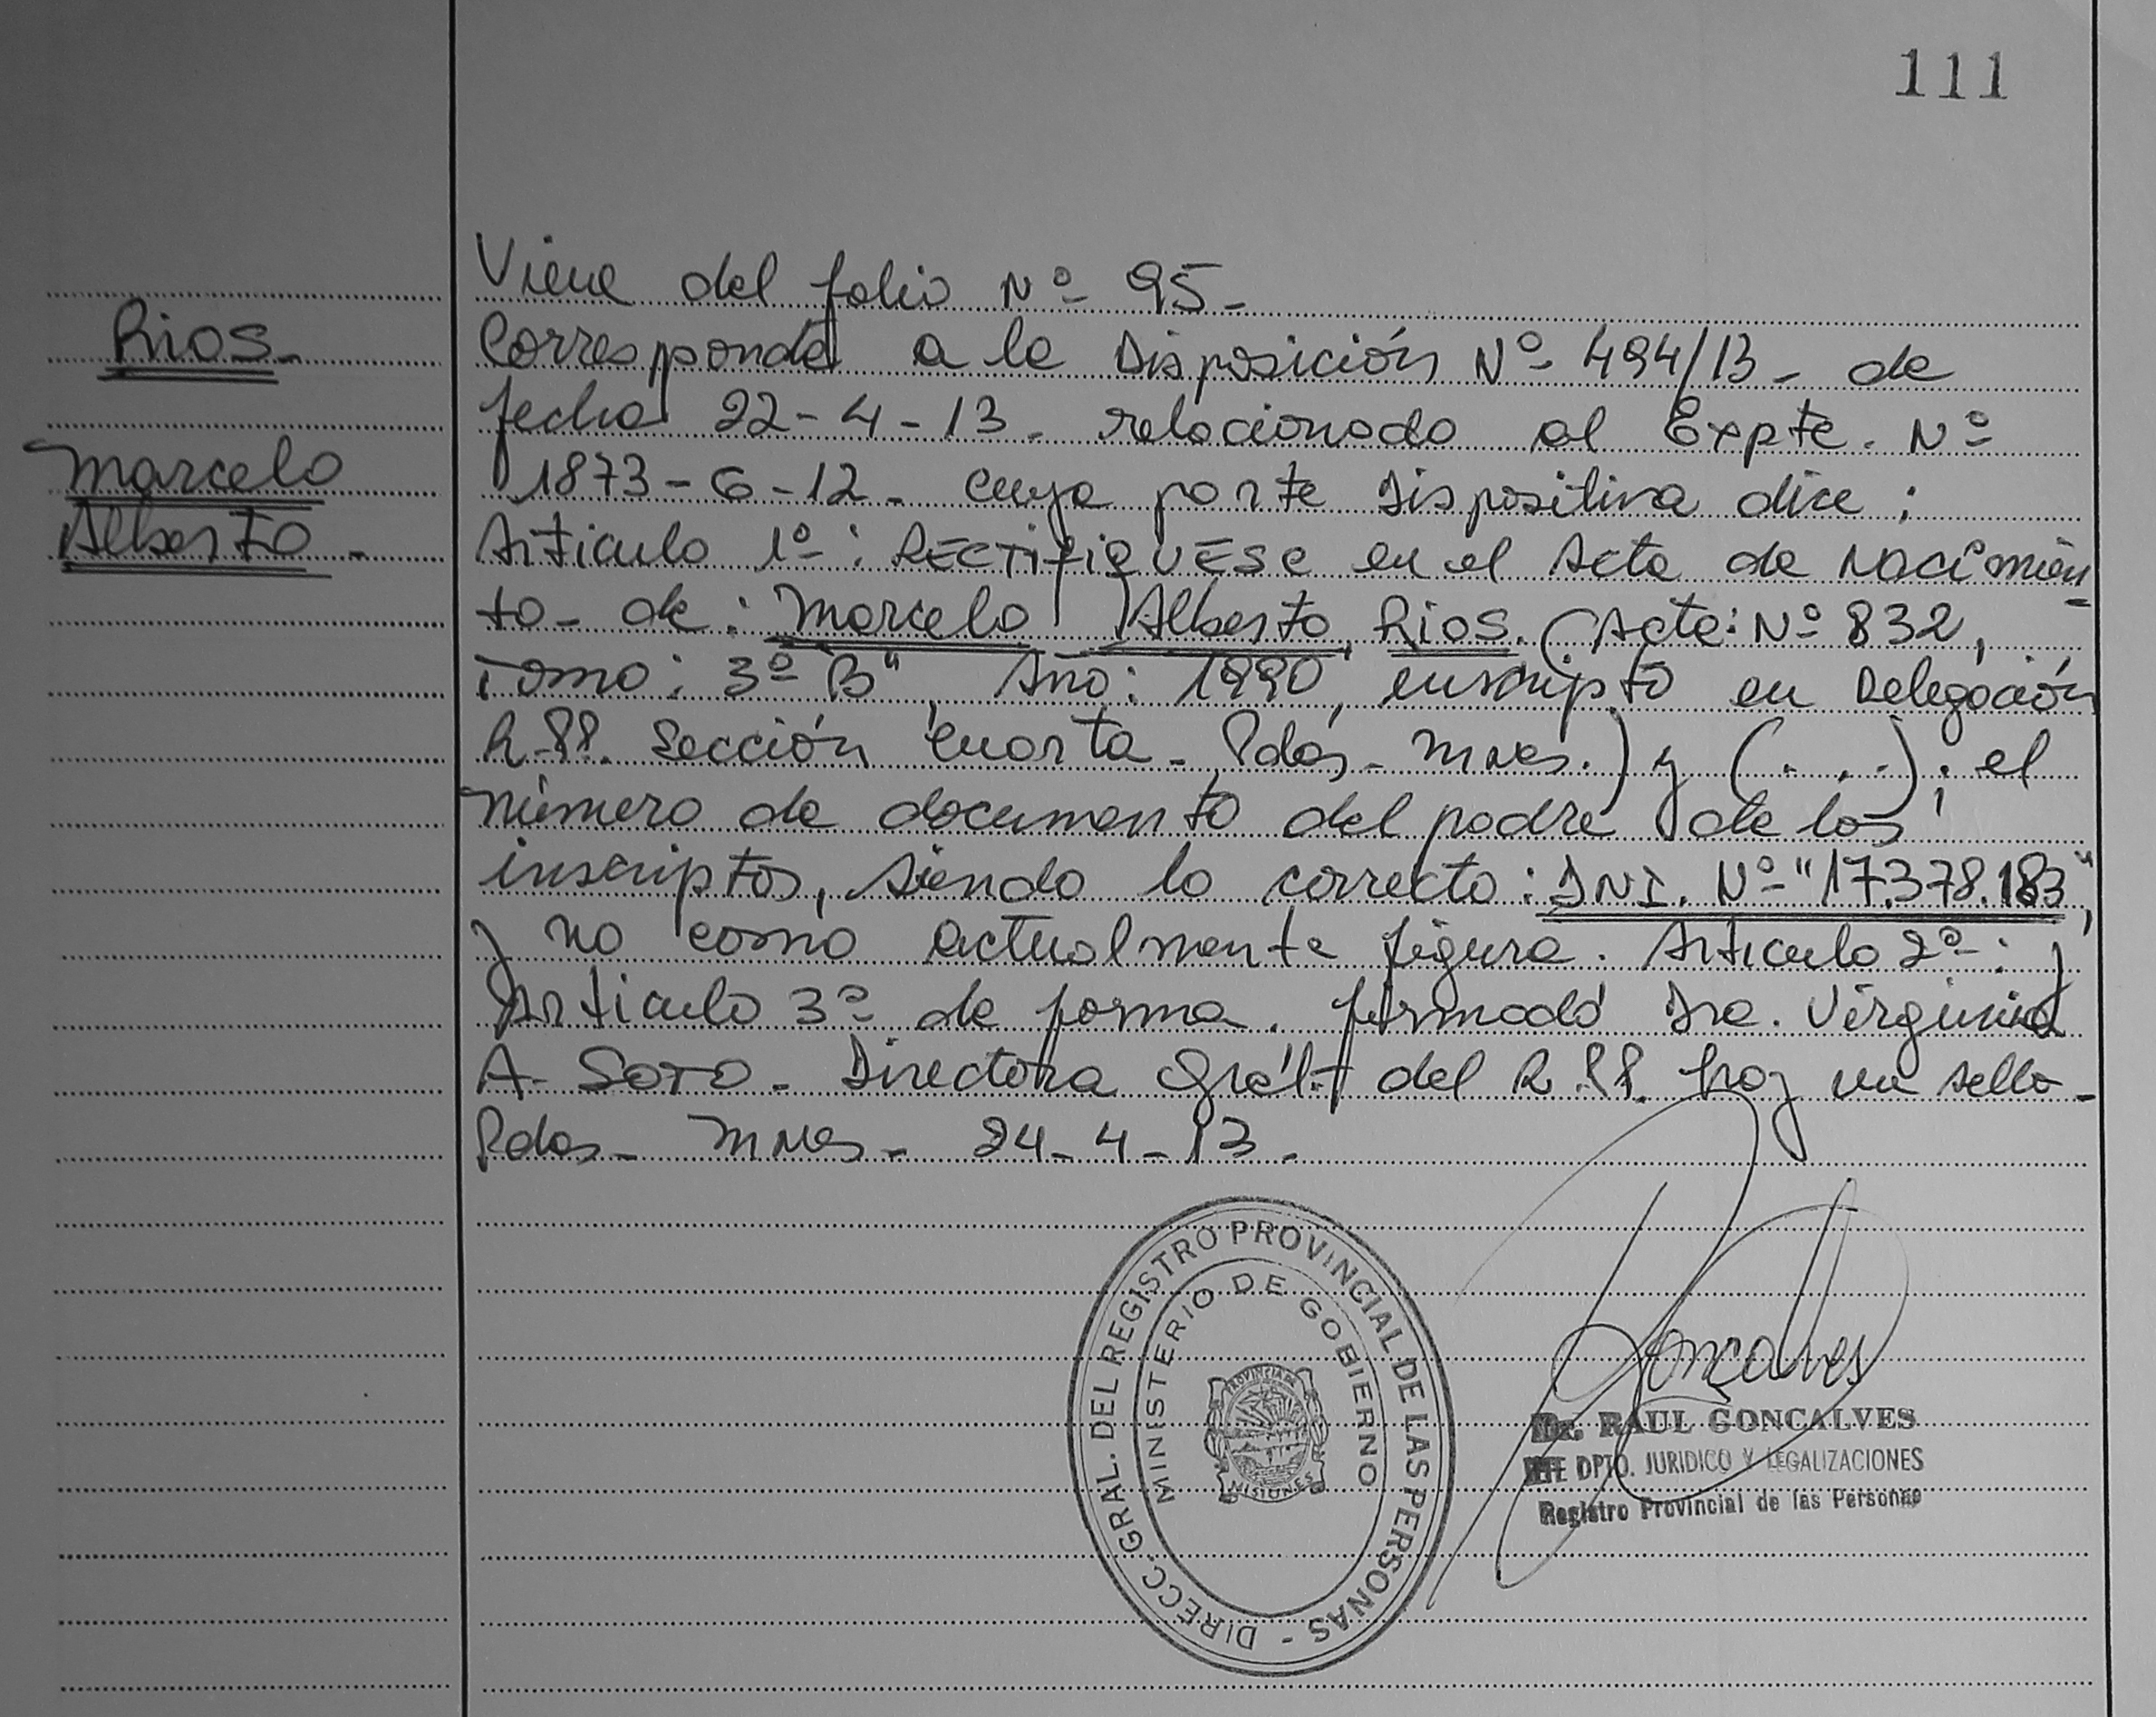 111
Viene del folio Nº 95-
Rios-
Corresponde a la Disposición Nº 494/13- de
fecha 22-4-13- relacionado al Expte. Nº
Marcelo
1873-G-12- cuya parte Dispositiva dice:
Alberto-
Articulo 1º: RECTIFIQUESE en el Acta de Nacimien
to- de: Marcelo Alberto Rios. (Acta: Nº 832,
Tomo: 3º B", Año: 1990, inscripto en Delegación
R.PP. Sección Cuarta- Pdas- Mnes.) y (...); el
número de documento del padre de los
inscriptos, siendo lo correcto: DNI. Nº "17.378.183",
y no como actualmente figura. Articulo 2º: y
Articulo 3º de forma. firmado Dra. Virginia
A- SOTO- Directora Gral- del R.PP. hay un sello-
Pdas- Mnes- 24-4-13-
DIRECC. GRAL. DEL REGISTRO PROVINCIAL DE LAS PERSONAS -
MINISTERIO DE GOBIERNO
PROVINCIA DE
MISIONES
Goncalves
Dr. RAUL GONCALVES
JEFE DPTO. JURIDICO Y LEGALIZACIONES
Registro Provincial de las Personas